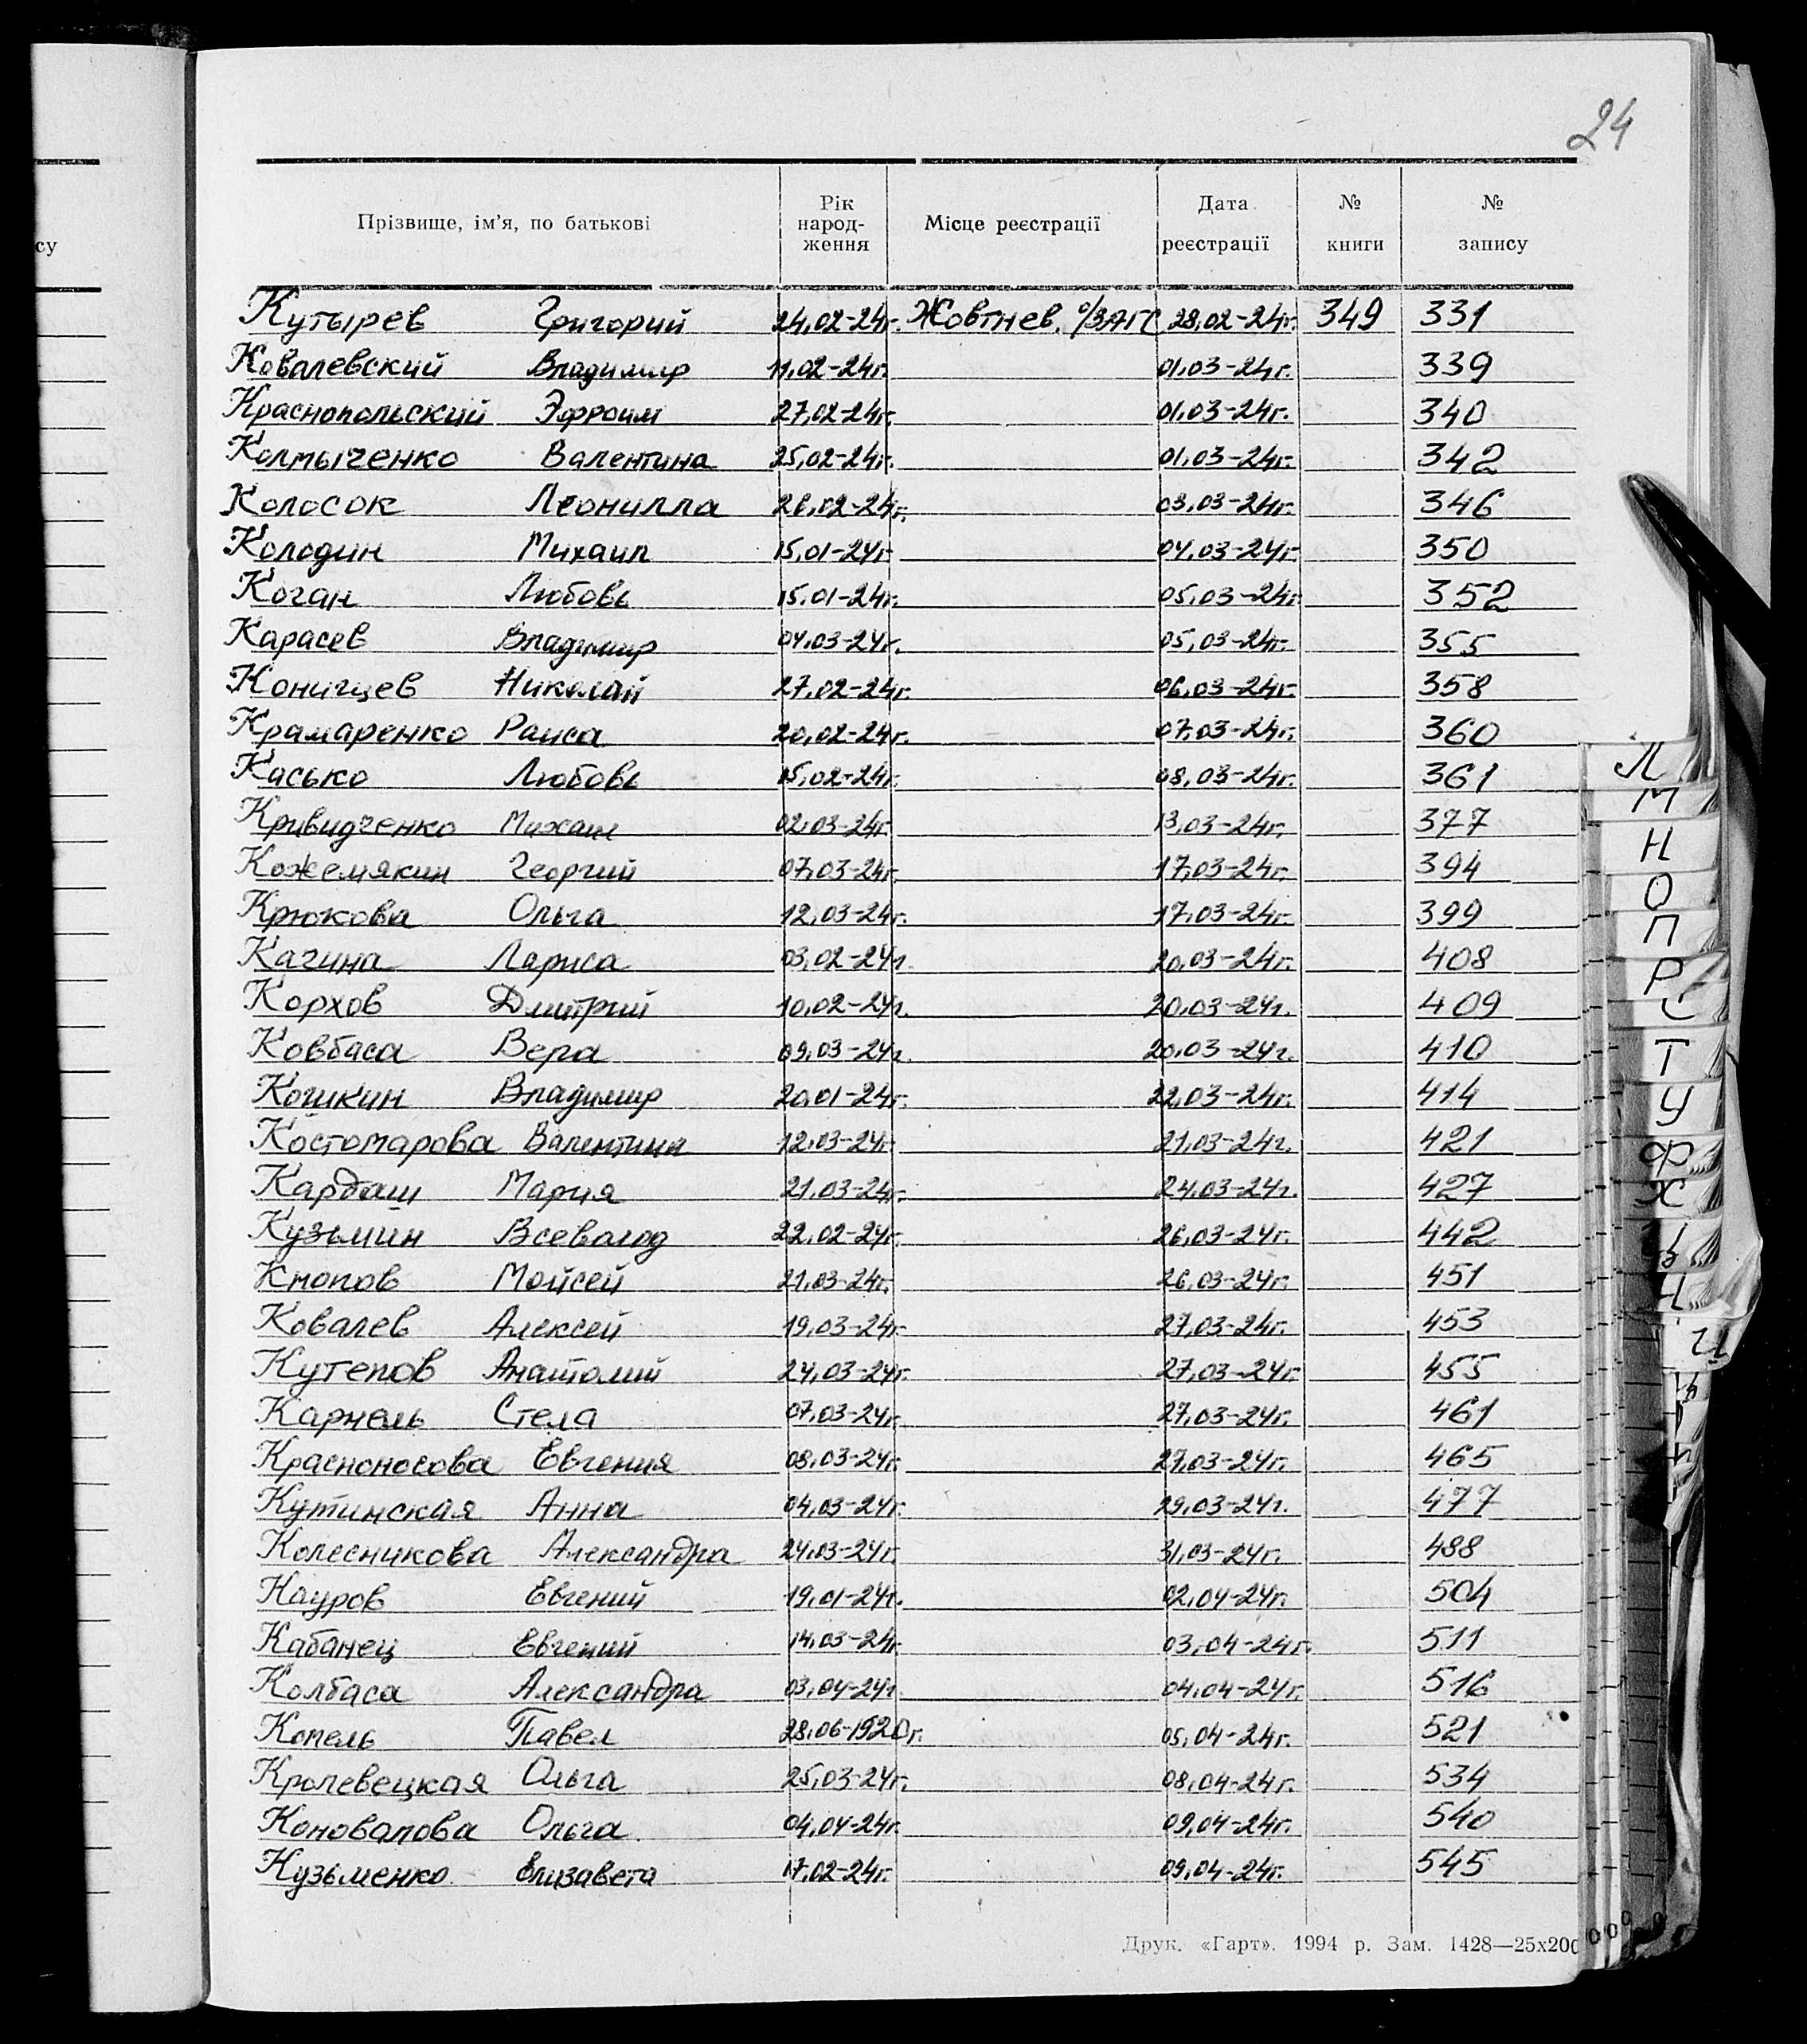 24
су
Прізвище, ім'я, по батькові Рік народ-ження Місце реєстрації Дата реєстрації № книги № запису
Кутырев Григорий 24.02-24г. Жовтнев. о/ЗАГС 28.02-24г. 349 331
Ковалевский Владимир 11.02-24г. 01.03-24г. 339
Краснопольский Эфроим 27.02-24г. 01.03-24г. 340
Колтыченко Валентина 25.02-24г. 01.03-24г. 342
Колосок Леонилла 26.02-24г. 03.03-24г. 346
Колодин Михаил 15.01-24г. 04.03-24г. 350
Коган Любовь 15.01-24г. 05.03-24г. 352
Карасев Владимир 04.03-24г. 05.03-24г. 355
Николай 27.02-24г. 06.03-24г. 358
Крамаренко Раиса 20.02-24г. 07.03-24г. 360
Касько Любовь 15.02-24г. 08.03-24г. 361
Кривидченко Михаил 02.03-24г. 13.03-24г. 377
Кожемякин Георгий 07.03-24г. 17.03-24г. 394
Крюкова Ольга 12.03-24г. 17.03-24г. 399
Качина Лариса 03.02-24г. 20.03-24г. 408
Корхов Дмитрий 10.02-24г. 20.03-24г. 409
Ковбаса Вера 09.03-24г. 20.03-24г. 410
Кошкин Владимир 20.01-24г. 22.03-24г. 414
Костомарова Валентина 12.03-24г. 21.03-24г. 421
Кардаш Мария 21.03-24г. 24.03-24г. 427
Кузьмин Всеволод 22.02-24г. 26.03-24г. 442
Кнопов Мойсей 21.03-24г. 26.03-24г. 451
Ковалев Алексей 19.03-24г. 27.03-24г. 453
Кутепов Анатолий 24.03-24г. 27.03-24г. 455
Карнель Стела 07.03-24г. 27.03-24г. 461
Красноносова Евгения 08.03-24г. 27.03-24г. 465
Кутинская Анна 04.03-24г. 29.03-24г. 477
Колесникова Александра 24.03-24г. 31.03-24г. 488
Кауров Евгений 19.01-24г. 02.04-24г. 504
Кабанец Евгений 14.03-24г. 03.04-24г. 511
Колбаса Александра 03.04-24г. 04.04-24г. 516
Копель Павел 28.06-1920г. 05.04-24г. 521
Кролевецкая Ольга 25.03-24г. 08.04-24г. 534
Коновалова Ольга 04.04-24г. 09.04-24г. 540
Кузьменко Елизавета 17.02-24г. 09.04-24г. 545
Друк. «Гарт». 1994 р. Зам. 1428—25х200
Л
М
Н
О
П
Р
С
Т
У
Ф
Х